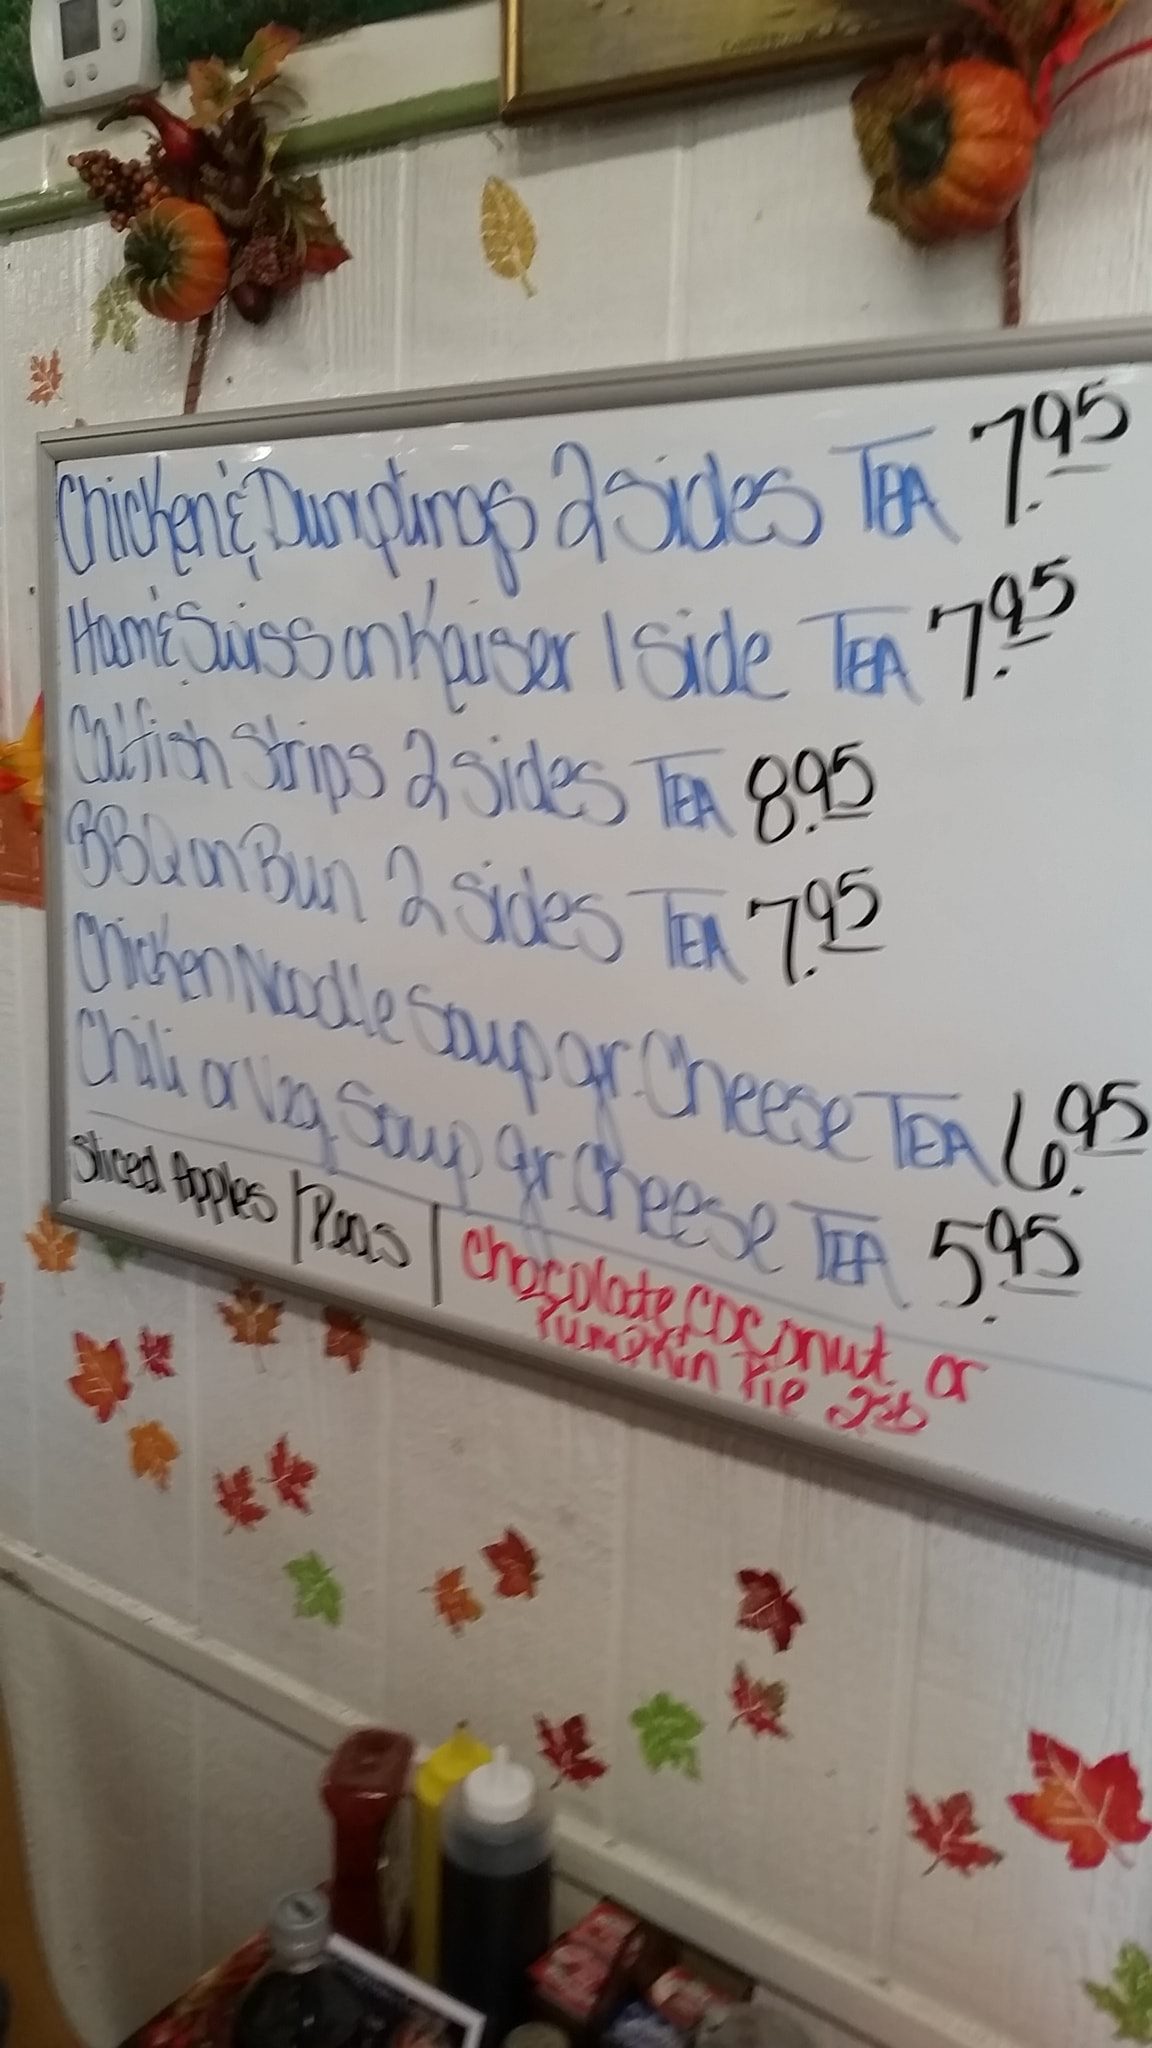 Chicken & Dumplings 2 sides TEA 7.95
Ham & Swiss on Kaiser 1 side TEA 7.95
Catfish Strips 2 sides TEA 8.95
BBQ on Bun 2 sides TEA 7.95
Chicken Noodle Soup gr. Cheese TEA 6.95
Chili or Veg. Soup gr. Cheese TEA 5.95
Sliced Apples | Peas | Chocolate, Coconut or
Pumpkin Pie